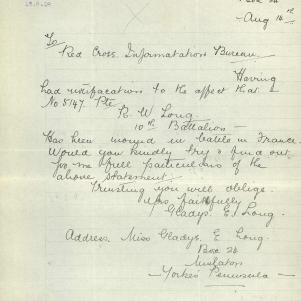 Box 24
Aug 14th
To
Red Cross Information Bureau
Having
had notifacations to the effect that
No 5147 Pte
R. W. Long
10th Battalion
Has been wounded in battle in France
Would you kindly try & find out
for me full particulars of the
above statement.
Trusting you will oblige.
Yrs faithfully
Gladys E. Long.
Address. Miss Gladys. E Long.
Box 24
Minlaton
Yorkes Peninsula